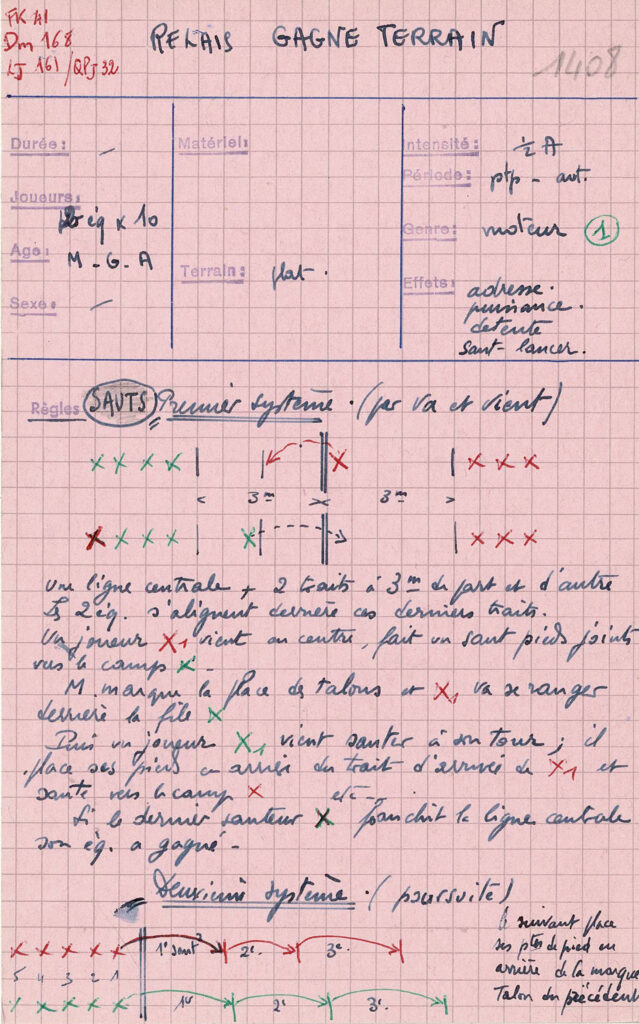 FK A1
Dm 168
LJ 161 / QPJ 32
RELAIS GAGNE TERRAIN
1408
Durée: -
Matériel:
Intensité: ½ A
Période: ptp - aut.
Joueurs: 2 éq x 10
Genre: moteur 1
Age: M - G - A
Terrain: plat.
Effets: adresse.
puissance.
détente
saut-lancer.
Sexe: -
Règles SAUTS Premier système. (par va et vient)
x x x x x x x x
3m 3m
x x x x x x x x
une ligne centrale + 2 traits à 3m de part et d'autre
Les 2 éq. s'alignent derrière ces derniers traits.
Un joueur X1 vient au centre, fait un saut pieds joints
vers le camp X -
M. marque la place des talons et X1 va se ranger
derrière la file X
Puis un joueur X1 vient sauter à son tour ; il
place ses pieds en arrière du trait d'arrivée de X1 et
saute vers le camp X etc -
Si le dernier sauteur X franchit la ligne centrale
son éq. a gagné -
Deuxième système. (poursuite)
le suivant place
ses ptes de pied en
arrière de la marque
Talon du précédent
x x x x x 1er saut 2e 3e
5 4 3 2 1
x x x x x 1er 2e 3e